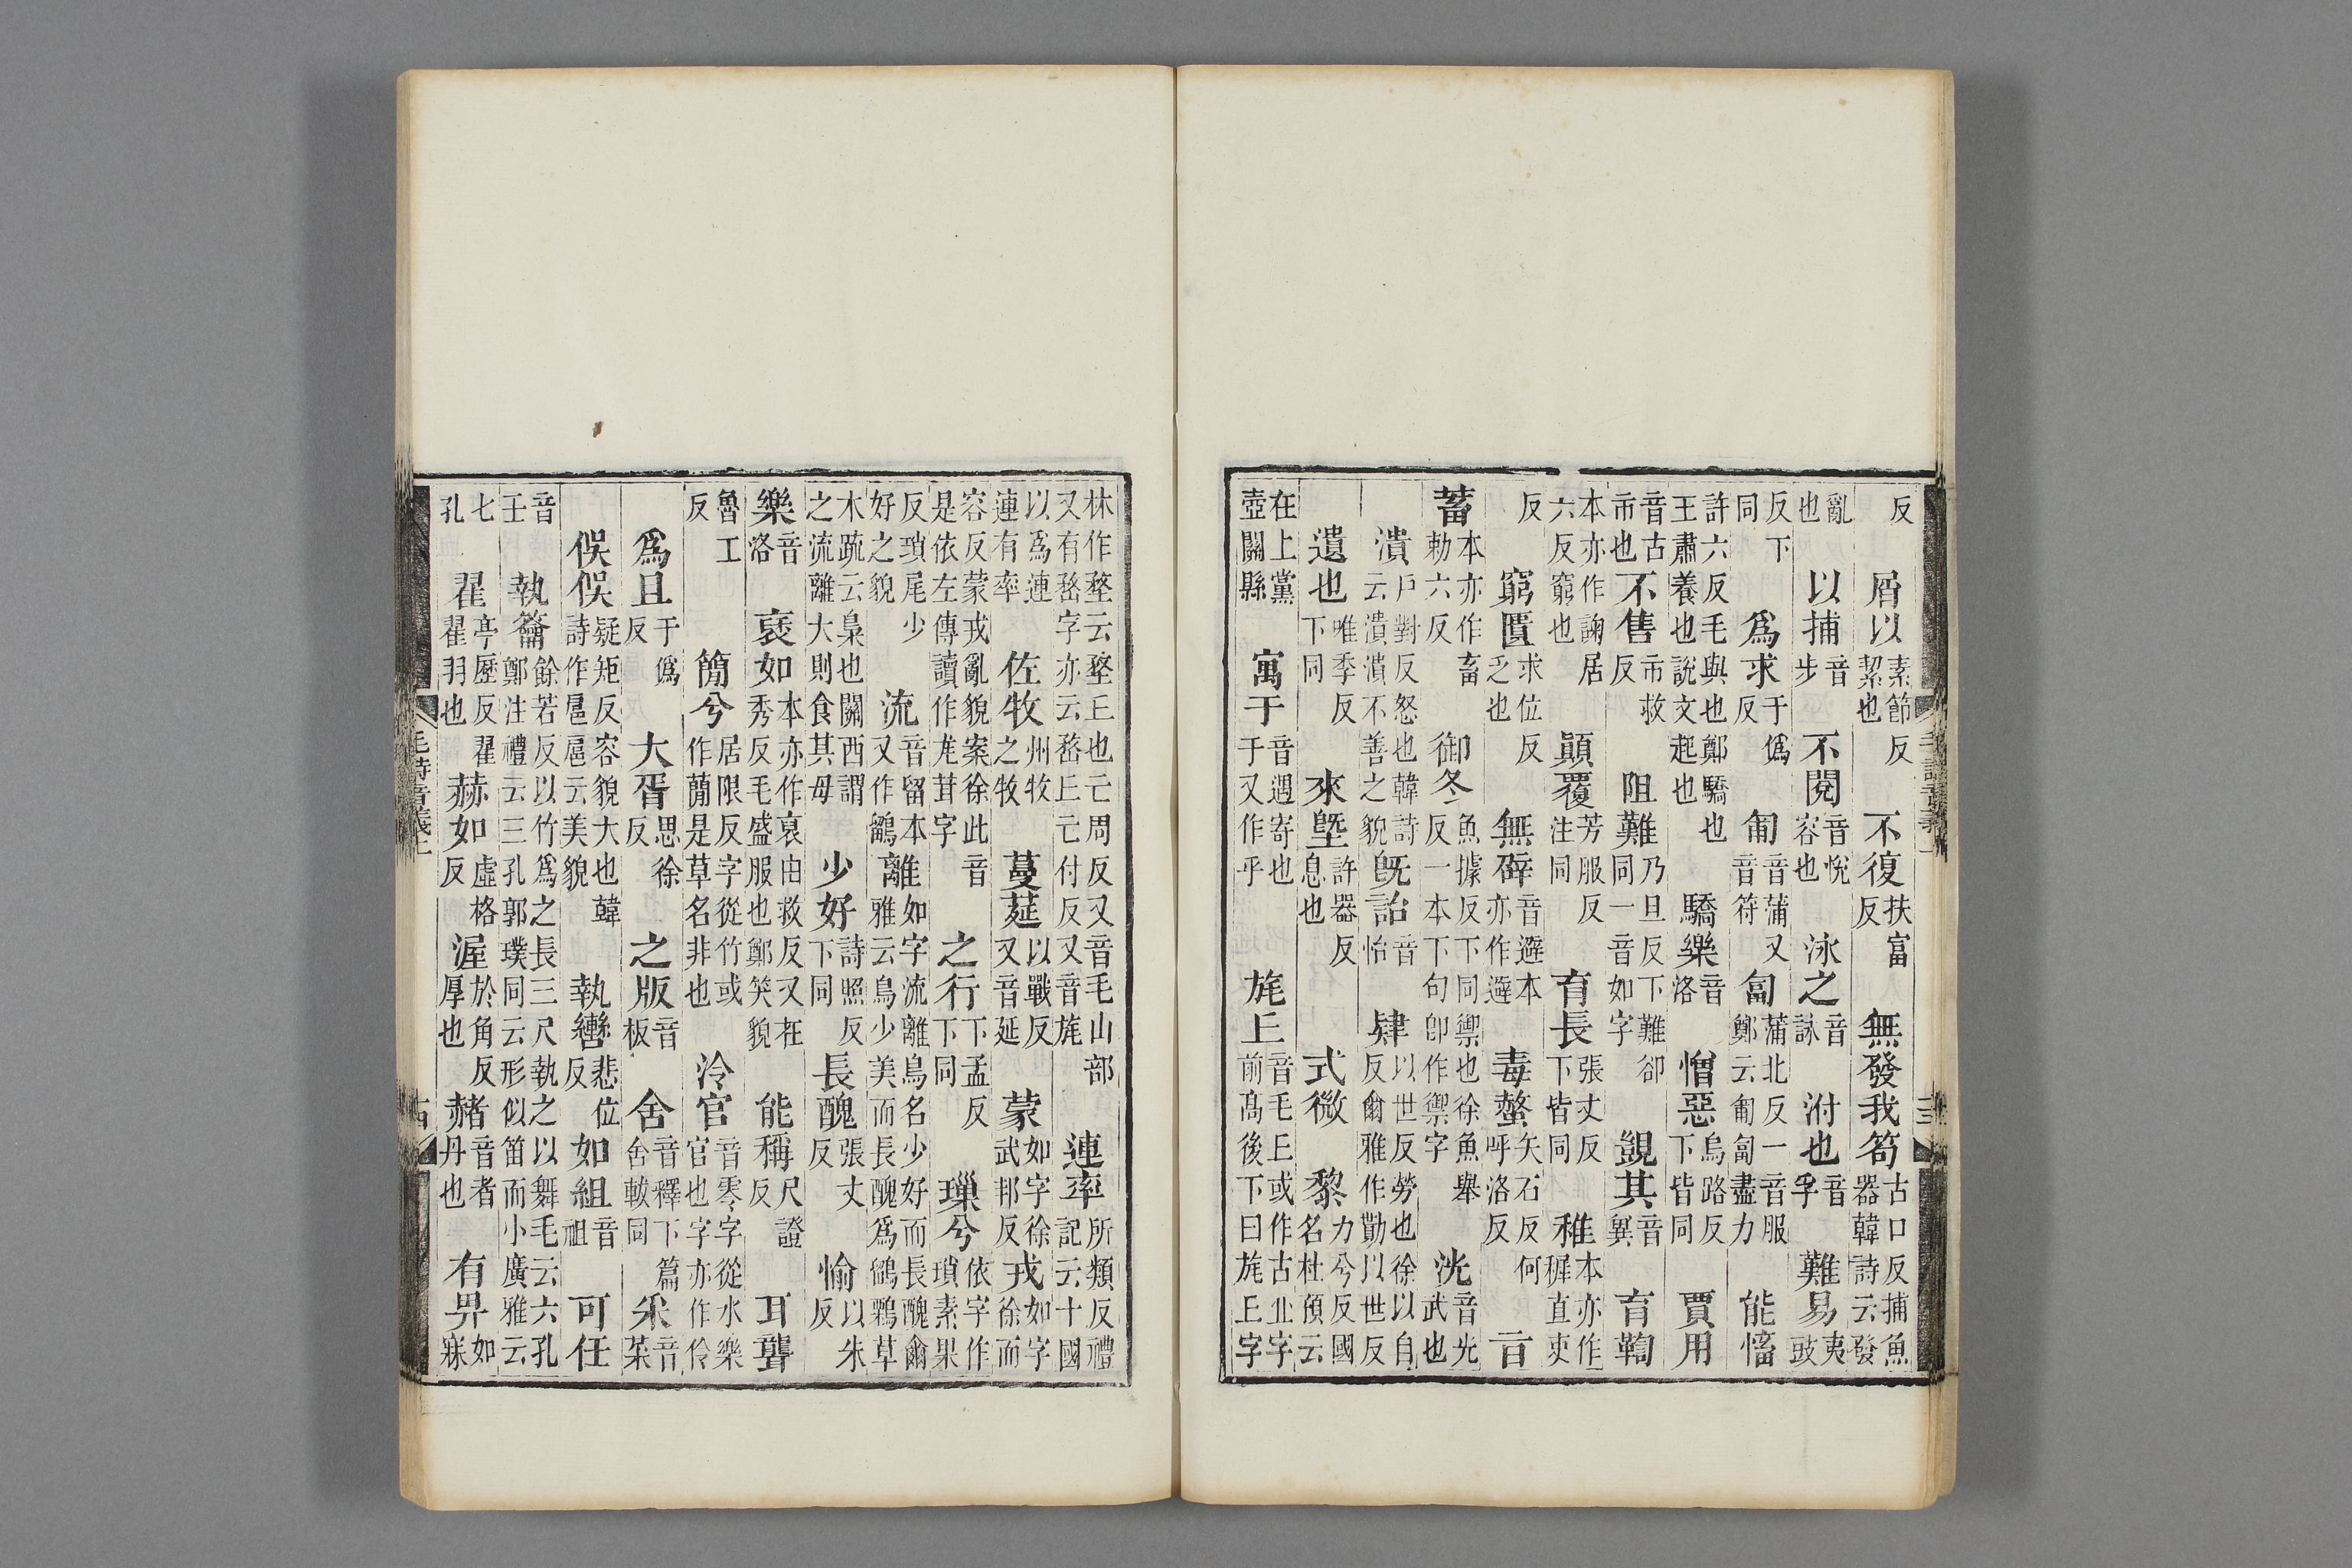 反屑以素節反絜也不復扶富反無發我笱古口反捕魚器韓詩云發
亂也以捕音步不閱音悅容也泳之音詠泭也音孚難易夷豉
反下同爲求于僞反匍音蒲又音符匐蒲北反一音服鄭云匍匐盡力能慉
許六反毛與也鄭驕也王肅養也說文起也驕樂音洛憎惡烏路反下皆同賈用
音古市也不售市救反阻難乃旦反下難卻同一音如字覬其音兾育鞫
本亦作諊居六反窮也顚覆芳服反注同育長張丈反下皆同稚本亦作稺直吏
反窮匱求位反乏也無辟音避本亦作避毒螫矢石反何呼洛反旨
蓄本亦作畜勑六反御冬魚據反下同禦也徐魚舉反一本下句卽作禦字洸音光武也
潰戶對反怒也韓詩云潰潰不善之貌旣詒音怡肄以世反勞也徐以自反爾雅作勩以世反
遺也唯季反下同來墍許器反息也式微黎力兮反國名杜預云
在上黨壺關縣寓于音遇寄也于又作乎旄丘音毛丘或作古丠字前高後下曰旄丘字
林作堥云堥丘也亡周反又音毛山部又有嵍字亦云嵍丘亡付反又音旄連率所類反禮記云十國
以爲連連有率佐牧州牧之牧蔓莚以戰反又音延蒙如字徐武邦反戎如字徐而
容反蒙戎亂貌案徐此音是依左傳讀作尨茸字之行下孟反下同璅兮依字作瑣素果
反瑣尾少好之貌流音留本又作鶹離如字流離鳥名少好而長醜爾雅云鳥少美而長醜爲鶹鷅草
木疏云梟也關西謂之流離大則食其母少好詩照反下同長醜張丈反愉以朱反
樂音洛裦如本亦作裒由救反又在秀反毛盛服也鄭笑貌能稱尺證反耳聾
魯工反簡兮居限反字從竹或作蕑是草名非也泠官音零字從水樂官也字亦作伶
爲且于僞反大胥思徐反之版音板舍音釋下篇舍軷同采音菜
俁俁疑矩反容貌大也韓詩作扈扈云美貌執轡悲位反如組音祖可任
音壬執籥餘若反以竹爲之長三尺執之以舞毛云六孔鄭注禮云三孔郭璞同云形似笛而小廣雅云
七孔翟亭歷反翟翟羽也赫如虛格反渥於角反厚也赭音者丹也有畀如寐